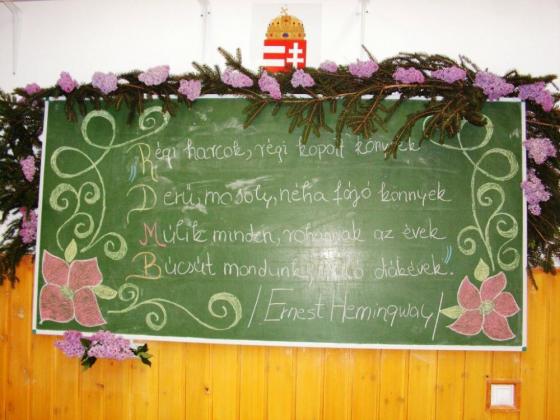 „Régi harcok, régi kopott könyvek
Derű, mosoly, néha fájó könnyek
Múlik minden, rohannak az évek
Búcsút mondunk, diákévek".
/Ernest Hemingway/